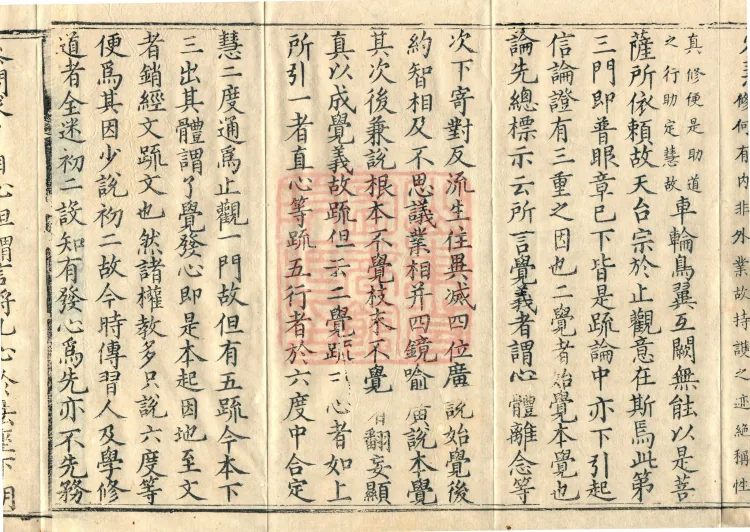 修何有内非外業故持讖之亦絕稱性
真修便是助道
之行助定慧故
車輪鳥翼互闕無能以是菩
薩所依賴故天台宗於止觀意在斯焉此第
三門即普眼章已下皆是疏論中亦下引起
信論證有三重之因也二覺者始覺本覺也
論先總標示云所言覺義者謂心體離念等
次下寄對反流生住異滅四位廣說始覺後
約智相及不思議業相并四鏡喻廣說本覺
其次後兼說根本不覺枝末不覺翻妄顯
真以成覺義故疏但示二覺疏三心者如上
所引一者直心等疏五行者於六度中合定
慧二度通爲止觀一門故但有五疏今本下
三出其體謂了覺發心即是本起因地至文
者銷經文疏文也然諸權教多只說六度等
便爲其因少說初二故今時傳習人及學修
道者全迷初二設知有發心爲先亦不先務